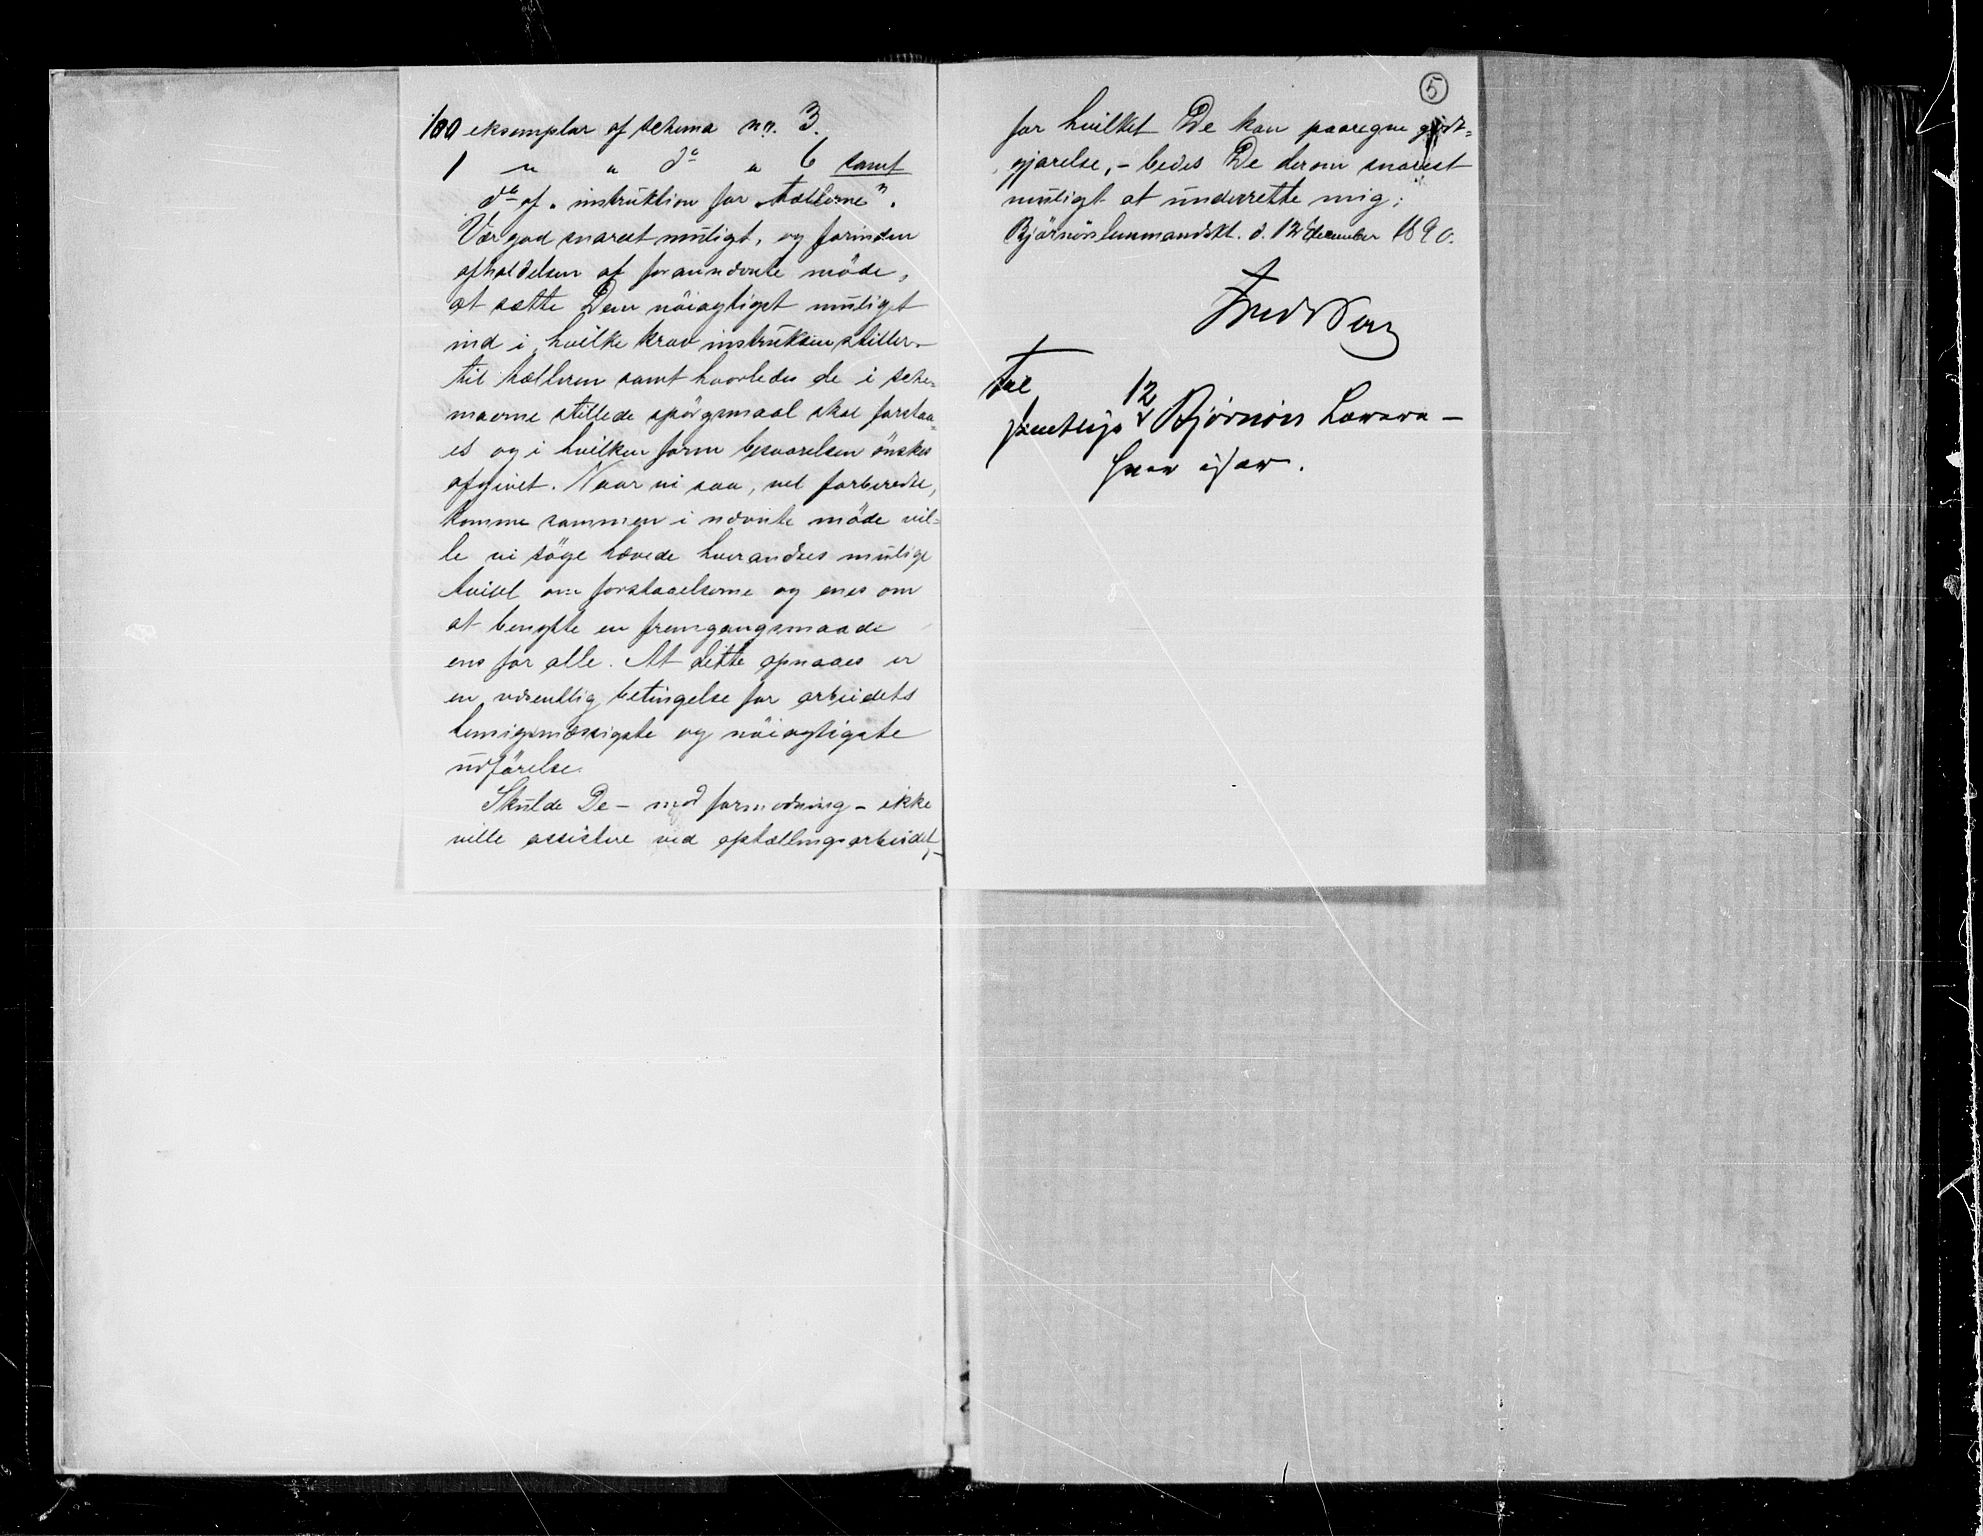 100 eksemplar af schema no. 3.
1 " " do " 6 samt
do af "instruktion for tællerne".
Vær god snarest muligt, og forinden
afholdelsen af forannævnte møde,
at sætte Dem nöiagtigst muligst
ind i, hvilke krav instruksen stiller
til tælleren samt hvorledes de i sche-
maerne stillede spörgsmaal skal forstaa-
es og i hvilken form besvarelsen önskes
afgivet. Naar vi saa, vel forberedte,
komme sammen i nævnte möde vil-
le vi söge hævede hverandres mulige
tvivl om forstaaelserne og enes om
at benytte en fremgangsmaade
ens for alle. At dette opnaaes er
en væsentlig betingelse for arbeidets
hensigsmæssigste og nöiagtigste
udförelse.
Skulde De – mod formodning – ikke
ville assistere ved optællingsarbeidet,–
5
for hvilket De kan paaregne godt-
gjørelse, – bedes De derom snarest
muligt at underrette mig;
Björnörs lensmandskt. d. 12 december 1890.
Til
12
samtlige Bjørnørs Lærere –
hver især.